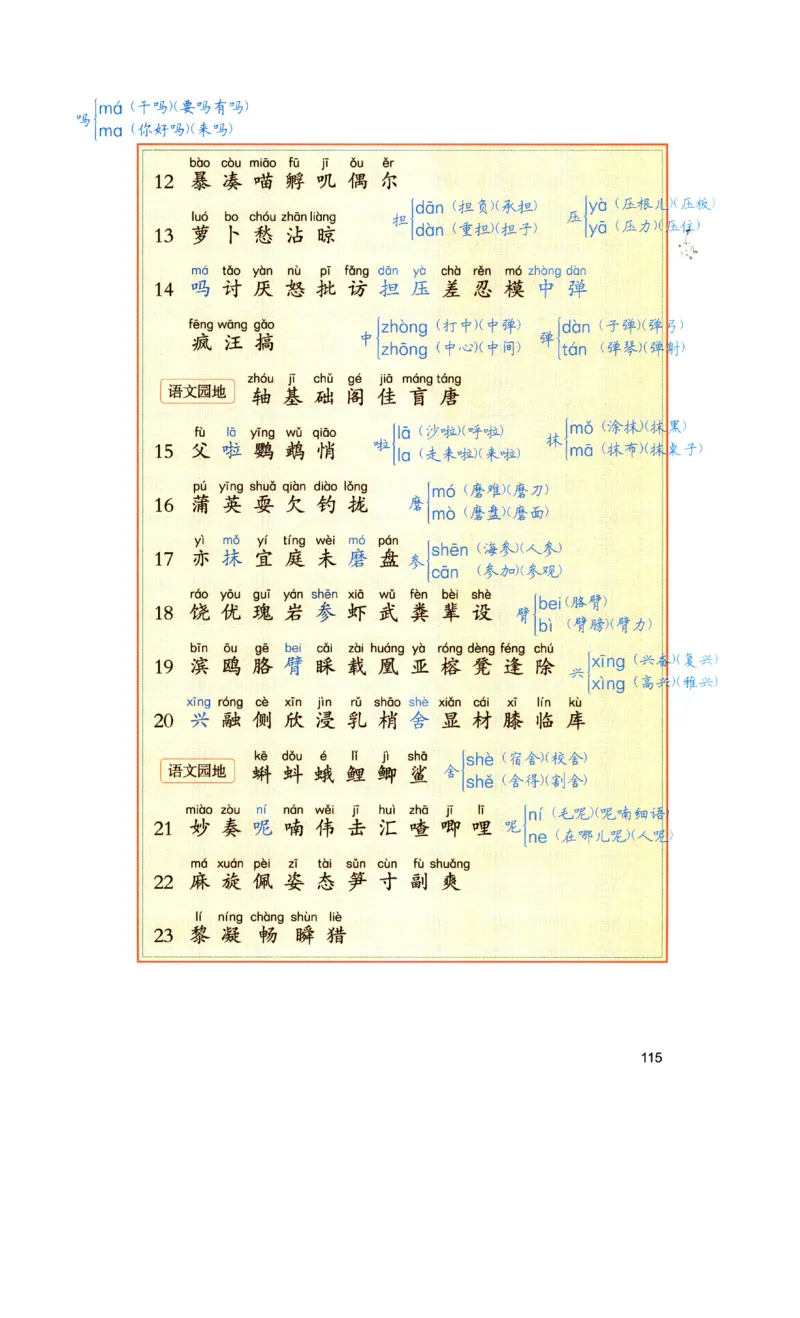 吗 má（干吗）（要吗有吗）
ma（你好吗）（来吗）
bào còu miāo fū jī ǒu ěr
12 暴 凑 喵 孵 叽 偶 尔
担 dān（担负）（承担）
dàn（重担）（担子）
压 yà（压根儿）（压板）
yā（压力）（压住）
luó bo chóu zhān liàng
13 萝 卜 愁 沾 晾
má tǎo yàn nù pī fǎng dān yà chà rěn mó zhòng dàn
14 吗 讨 厌 怒 批 访 担 压 差 忍 模 中 弹
fēng wāng gǎo
疯 汪 搞
中 zhòng（打中）（中弹）
zhōng（中心）（中间）
弹 dàn（子弹）（弹弓）
tán（弹琴）（弹射）
zhóu jī chǔ gé jiā máng táng
语文园地 轴 基 础 阁 佳 盲 唐
fù lā yīng wǔ qiāo
15 父 啦 鹦 鹉 悄
啦 lā（沙啦）（呼啦）
la（走来啦）（来啦）
抹 mǒ（涂抹）（抹黑）
mā（抹布）（抹桌子）
pú yīng shuǎ qiàn diào lǒng
16 蒲 英 耍 欠 钓 拢
磨 mó（磨难）（磨刀）
mò（磨盘）（磨面）
yì mǒ yí tíng wèi mó pán
17 亦 抹 宜 庭 未 磨 盘
参 shēn（海参）（人参）
cān（参加）（参观）
ráo yōu guī yán shēn xiā wǔ fèn bèi shè
18 饶 优 瑰 岩 参 虾 武 粪 辈 设
臂 bei（胳臂）
bì（臂膀）（臂力）
bīn ōu gē bei cǎi zài huáng yà róng dèng féng chú
19 滨 鸥 胳 臂 睬 载 凰 亚 榕 凳 逢 除
兴 xīng（兴奋）（复兴）
xìng（高兴）（雅兴）
xīng róng cè xīn jìn rǔ shāo shè xiǎn cái xī lín kù
20 兴 融 侧 欣 浸 乳 梢 舍 显 材 膝 临 库
kē dǒu é lǐ jì shā
语文园地 蝌 蚪 蛾 鲤 鲫 鲨
舍 shè（宿舍）（校舍）
shě（舍得）（割舍）
miào zòu ní nán wěi jī huì zhā jī lī
21 妙 奏 呢 喃 伟 击 汇 喳 唧 哩
呢 ní（毛呢）（呢喃细语）
ne（在哪儿呢）（人呢）
má xuán pèi zī tài sǔn cùn fù shuǎng
22 麻 旋 佩 姿 态 笋 寸 副 爽
lí níng chàng shùn liè
23 黎 凝 畅 瞬 猎
115